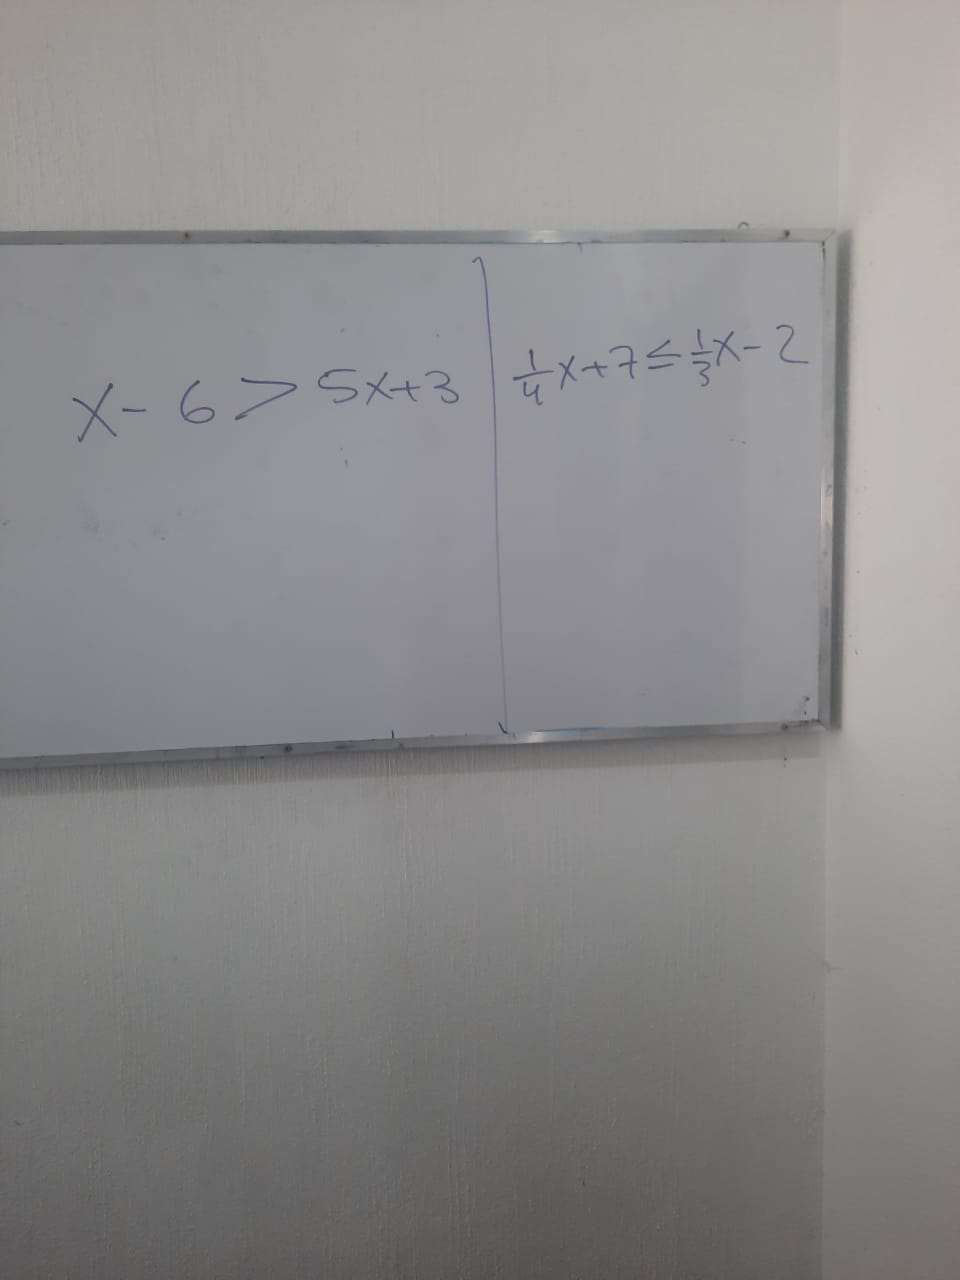 x - 6 > 5x+3
1/4 x+7 ≤ 1/3 x - 2